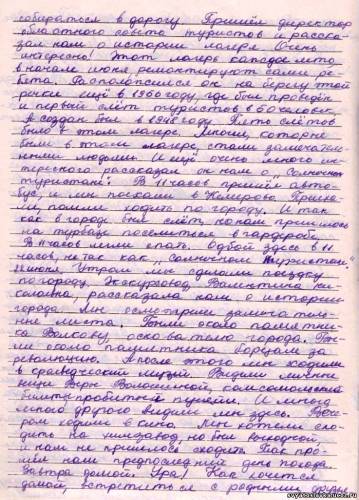 собираться в дорогу. Пришёл директор
областного совета туристов и расска-
зал нам о истории лагеря. Очень
интересно! Этот лагерь каждое лето
в начале июня ремонтируют сами ре-
бята. Расположился он на берегу этой
речки ещё в 1960 году, где был проведён
и первый слёт туристов в 60 человек.
А создан был в 1948 году. Пять слётов
было в этом лагере. Многие, которые
были в этом лагере, стали замечатель-
ными людьми. И ещё очень много ин-
тересного рассказал он нам о „Солнечном
туристане". В 11 часов пришёл авто-
бус, и мы поехали в Кемерово. Приеха-
ли, пошли ходить по городу. И так
как в городе был слёт, то нам пришлось
на турбазе поселиться в гардеробе.
В 11 часов легли спать. Отбой здесь в 11
часов, не так как в „Солнечном туристане".
июня. Утром мы сделали поездку
по городу. Экскурсовод Валентина Ни-
колаевна, рассказала нам о истории
города. Мы осмотрели замечатель-
ные места. Были около памятни-
ка Волкову, основателю города. Бы-
ли около памятника борцам за
революцию. А после этого мы ходили
в краеведческий музей. Видели личные
вещи Веры Волошиной, комсомольский
билет пробитый пулей. И много
много другого видели мы здесь. Вече-
ром ходили в кино. Мы хотели схо-
дить на химзавод, но был выходной,
и нам не пришлось сходить. Так про-
шёл наш предпоследний день похода.
Завтра домой. Ура! Как хочется
домой, встретиться с родными, друзья-